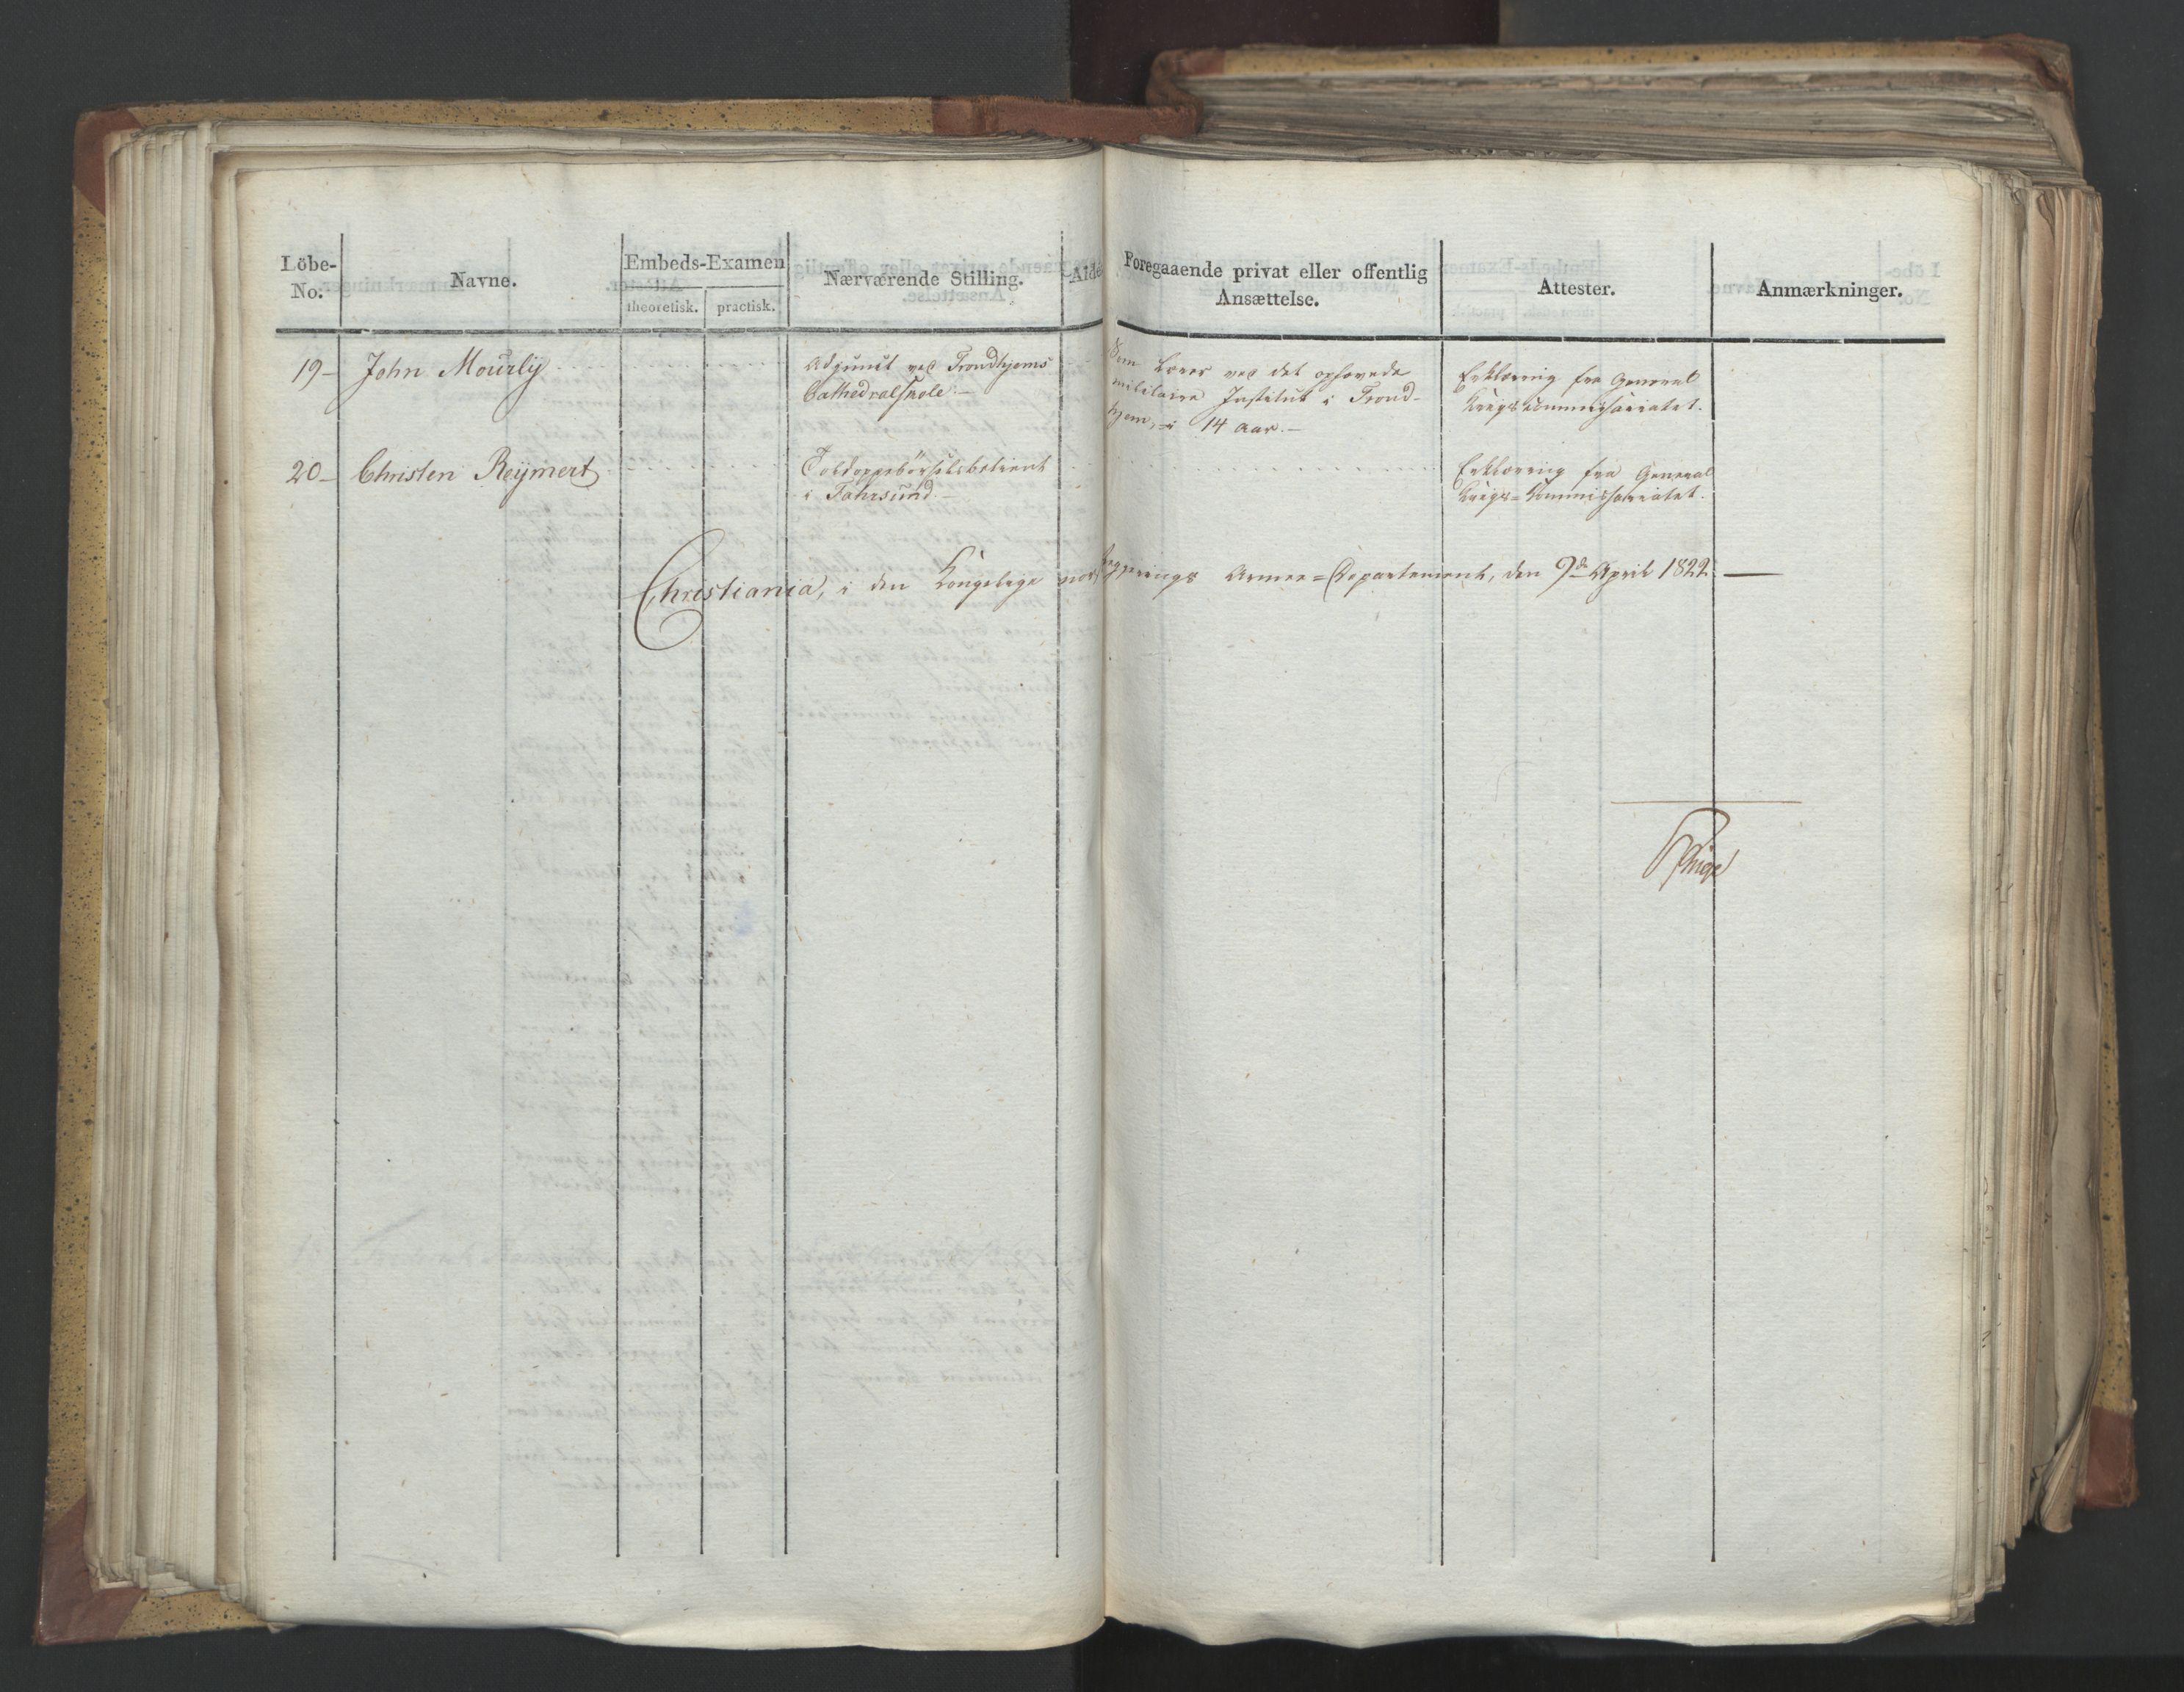 Löbe-
No.
Navne.
Embeds-Examen
theoretisk.
practisk.
Nærværende Stilling.
Alde
Foregaaende privat eller offentlig
Ansættelse.
Attester.
Anmærkninger.
19-
John Mourly
Adjunct ved Trondhjems
Cathedralskole.-
Som Lærer ved det ophævede
militaire Institut i Trond-
hjem, i 14 Aar.-
Erklæring fra General
Krigskommissariatet.
20-
Christen Reymert
Toldoppebörselsbetient
i Fahrsund.-
Erklæring fra General
Krigs=Kommissariatet.
Christiania, i den Kongelige norske Regjerings Armee=Departement, den 9de April 1822.